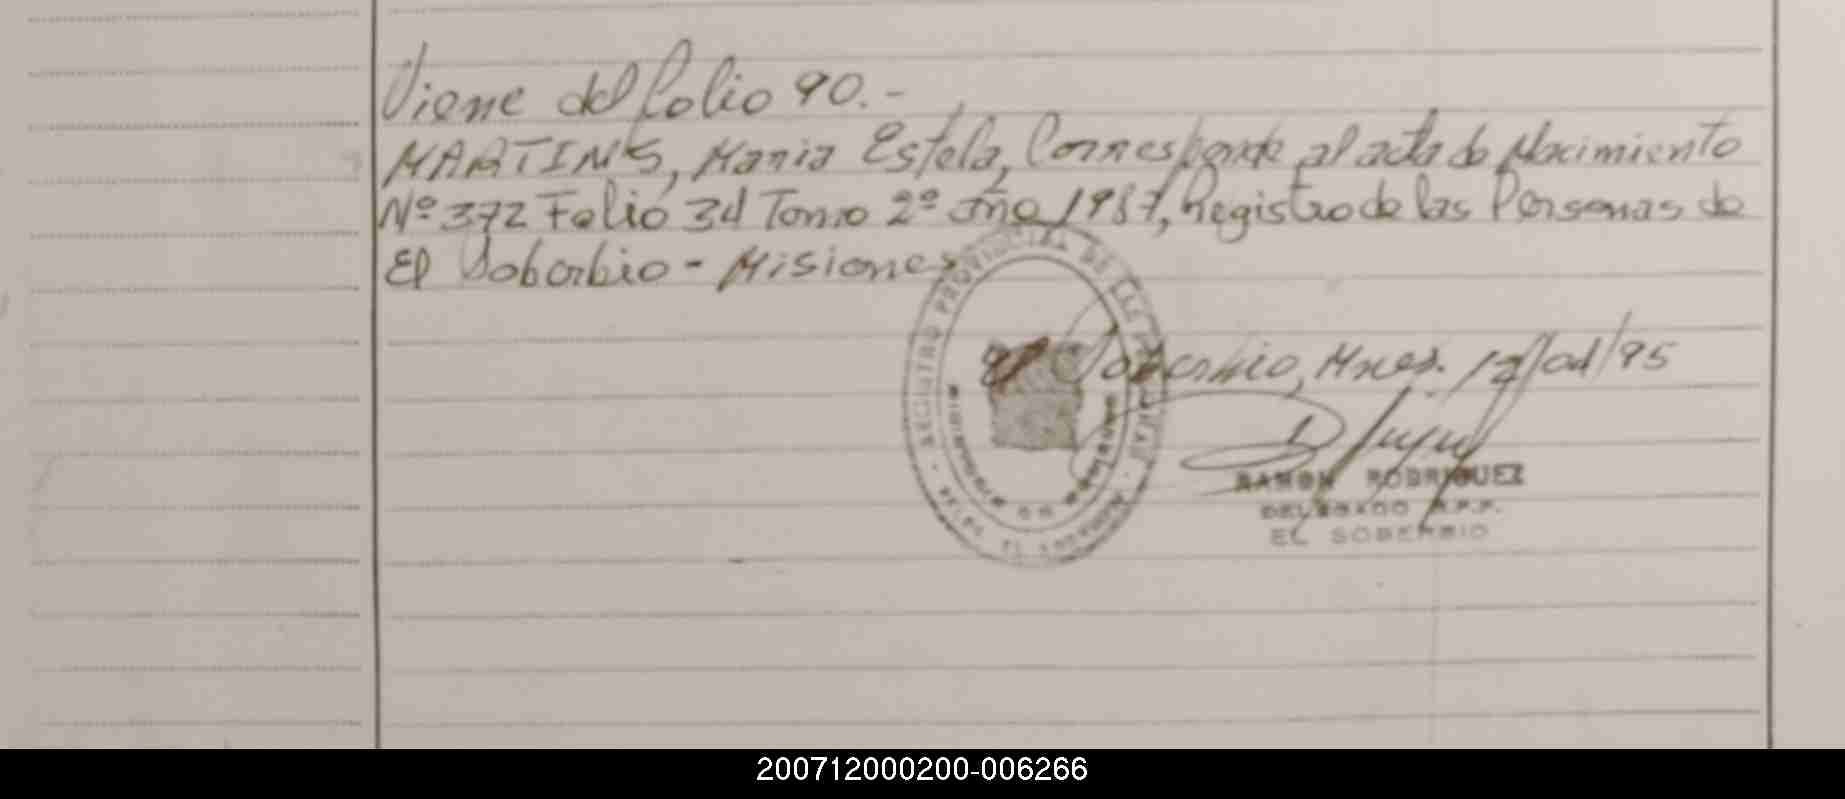 Viene del folio 90.-
MARTINS, Maria Estela, Corresponde al acta de Nacimiento
Nº 372 Folio 34 Tomo 2º año 1987, Registro de las Personas de
El Soberbio - Misiones
REGISTRO PROVINCIAL DE LAS PERSONAS
El Soberbio, Mnes. 12/04/95
RAMON RODRIGUEZ
DELEGADO R.P.P.
EL SOBERBIO
200712000200-006266